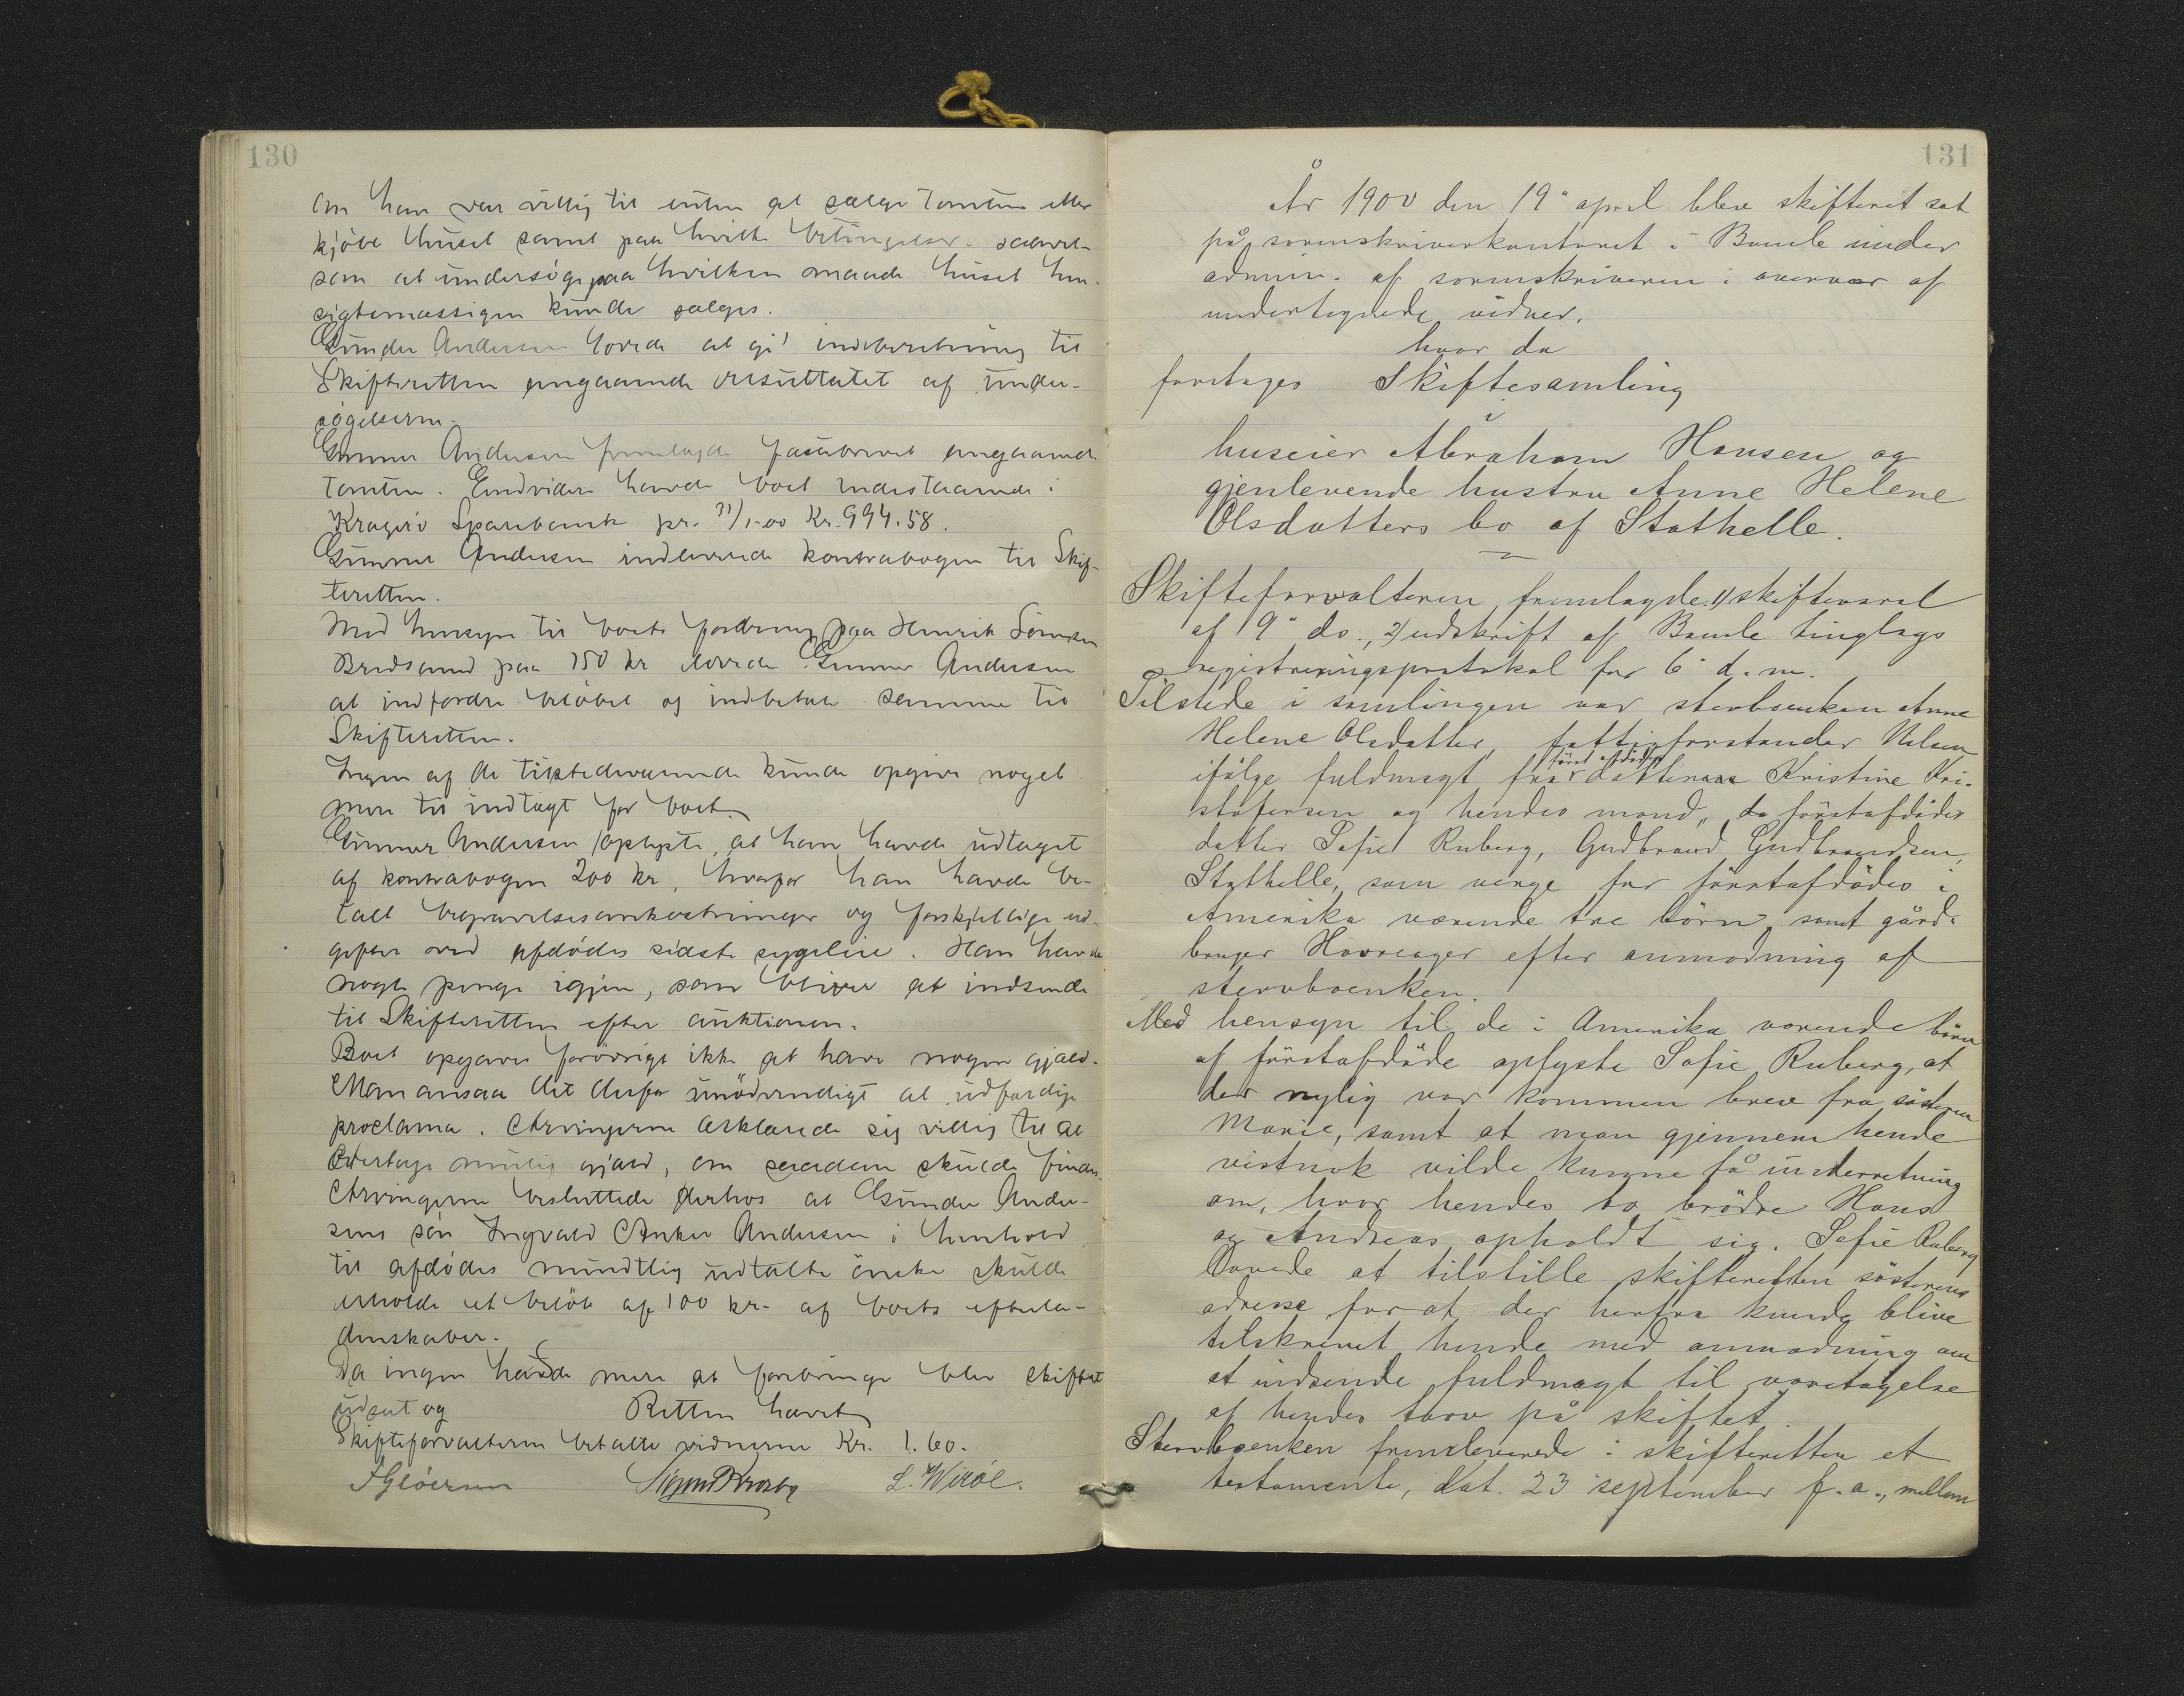 130
om han var villig til enten at sælge tomten eller
kjöbe huset samt paa hvilke betingelser saavel-
som at undersöge paa hvilken maade huset hen-
sigtsmæssigen kunde sælges.
Gunder Andersen lovede at gi' indberetning til
Skifteretten angaaende resultatet af under-
søgelserne.
Gunner Andersen fremlagde angaaende
tomten. Endvidere havde boet indestaaende i
Kragerö Sparebank pr. 31/1-00 Kr. 994.58.
Gunner Andersen indleverede kontrabogen til Skif-
teretten.
Med hensyn til boets fordring paa Henrik
paa 150 kr lovede Gunner Andersen
at indfordre beløbet og indbetale samme til
Skifteretten.
Ingen af de tilstedeværende kunde opgive noget
mere til indtægt for boet.
Gunner Andersen oplyste, at han havde udtaget
af kontrabogen 200 kr, hvorfor han havde be-
talt begravelsesomkostninger og forskjellige ud-
gifter ved afdödes sidste sygeleie. Han havde
nogle penge igjen, som bliver at indsende
til Skifteretten efter auktionen.
Boet opgaves forövrigt ikke at have nogen gjæld.
Man ansaa det derfor unödvendigt at udfærdige
proclama. Arvingerne erklærede sig villig til at
overtage mulig gjæld, om saadan skulde findes.
Arvingerne besluttede derhos at Gunder Ander-
sens sön Ingvald Anker Andersen i henhold
til afdödes mundtlig udtalte önske skulde
erholde et belöb af 100 kr. af boets efterla-
denskaber.
Da ingen havde mere at forebringe blev skiftet
udsat og Retten hævet
Skifteforvalteren betalte vidnerne Kr. 1.60.
L. Wiröl.
131
År 1900 den 19" april blev skifteret sat
på sorenskriverkontoret i Bamle under
admin. af sorenskriveren i overvær af
undertegnede vidner,
hvor da
foretoges Skiftesamling
i
huseier Abraham Hansen og
gjenlevende hustru Anne Helene
Olsdatters bo af Stathelle.
Skifteforvalteren fremlagde 1) skiftevarsel
af 9" ds., 2) udskrift af Bamle tinglags
registreringsprotokol for 6" d. m.
Tilstede i samlingen var stervboenken Anne
Helene Olsdatter, fattigforstander Nilsen
först afdödes
ifölge fuldmagt fra datteren Kristine Kri-
stofersen og hendes mand, da förstafdödes
datter Sofie Ruberg, Gudbrand Gudbrandsen,
Stathelle, som verge for förstafdödes i
Amerika værende tre börn samt gård-
bruger Havreager efter anmodning af
stervboenken.
Med hensyn til de i Amerika værende börn
af förstafdöde oplyste Sofie Ruberg, at
der nylig var kommen brev fra sösteren
Marie, samt at man gjennem hende
vistnok vilde kunne få underretning
om, hvor hendes to brödre Hans
og Andreas opholdt sig. Sofie Ruberg
lovede at tilstille skifteretten sösterens
adresse for at der herfra kunde blive
tilskrevet hende med anmodning om
at indsende fuldmagt til varetagelse
af hendes tarv på skiftet.
Stervboenken fremleverede i skifteretten et
testamente, dat. 23 september f. a., mellem